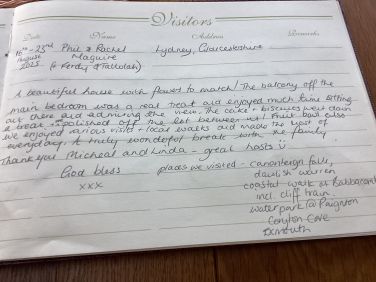 Visitors
Date Name Address Remarks
16th - 23rd Phil & Rachel Lydney, Gloucestershire
August Maguire
2025 (+ Ferdy & Tallulah)
A beautiful house with flowers to match! The balcony off the
main bedroom was a real treat and enjoyed much time sitting
out there and admiring the view. The cake + biscuits went down
a treat - polished off the lot between us! Fruit bowl also
we enjoyed various visits + local walks and made the most of
everyday. A truly wonderful break with the family
Thank you Micheal and Linda - great hosts
God bless places we visited - canonteign falls,
xxx dawlish warren
coastal walk at Babbacombe
incl. cliff train.
waterpark @ Paignton
Coryton Cove
Exmouth